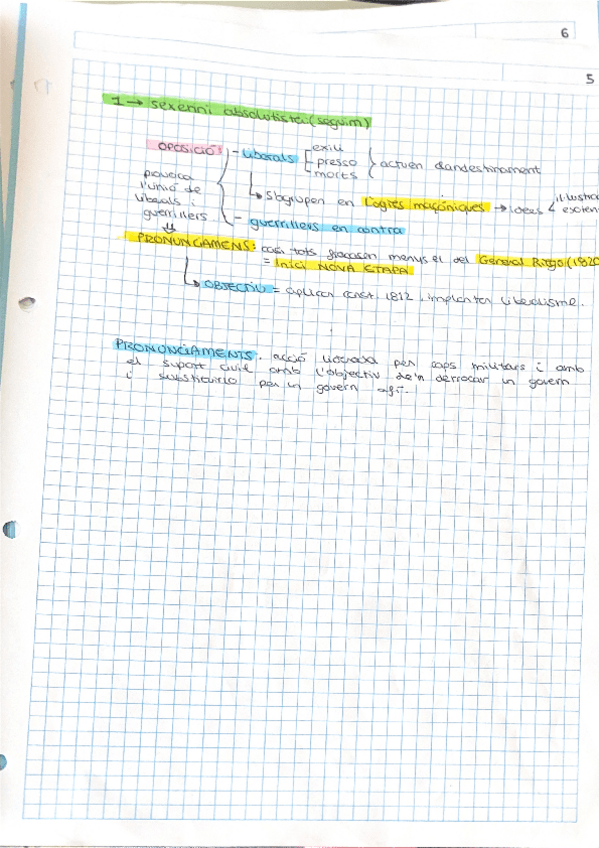 6
5
1 → sexenni absolutista (seguim)
OPOSICIÓ: - liberals exili
presso
morts
actuen clandestinament
provoca
l'unió de
liberals i
guerrillers
S'agrupen en Logies maçòniques → idees
- guerrillers en contra
PRONUNCIAMENS: casi tots fracasen menys el del General Riego (1820
= Inici NOVA ETAPA
OBJECTIU = aplicar const. 1812, implantar liberalisme.
PRONUNCIAMENTS. acció liderada per caps militars i amb
el suport civil amb l'objectiu de'n derrocar un govern
i substituirlo per un govern afí.